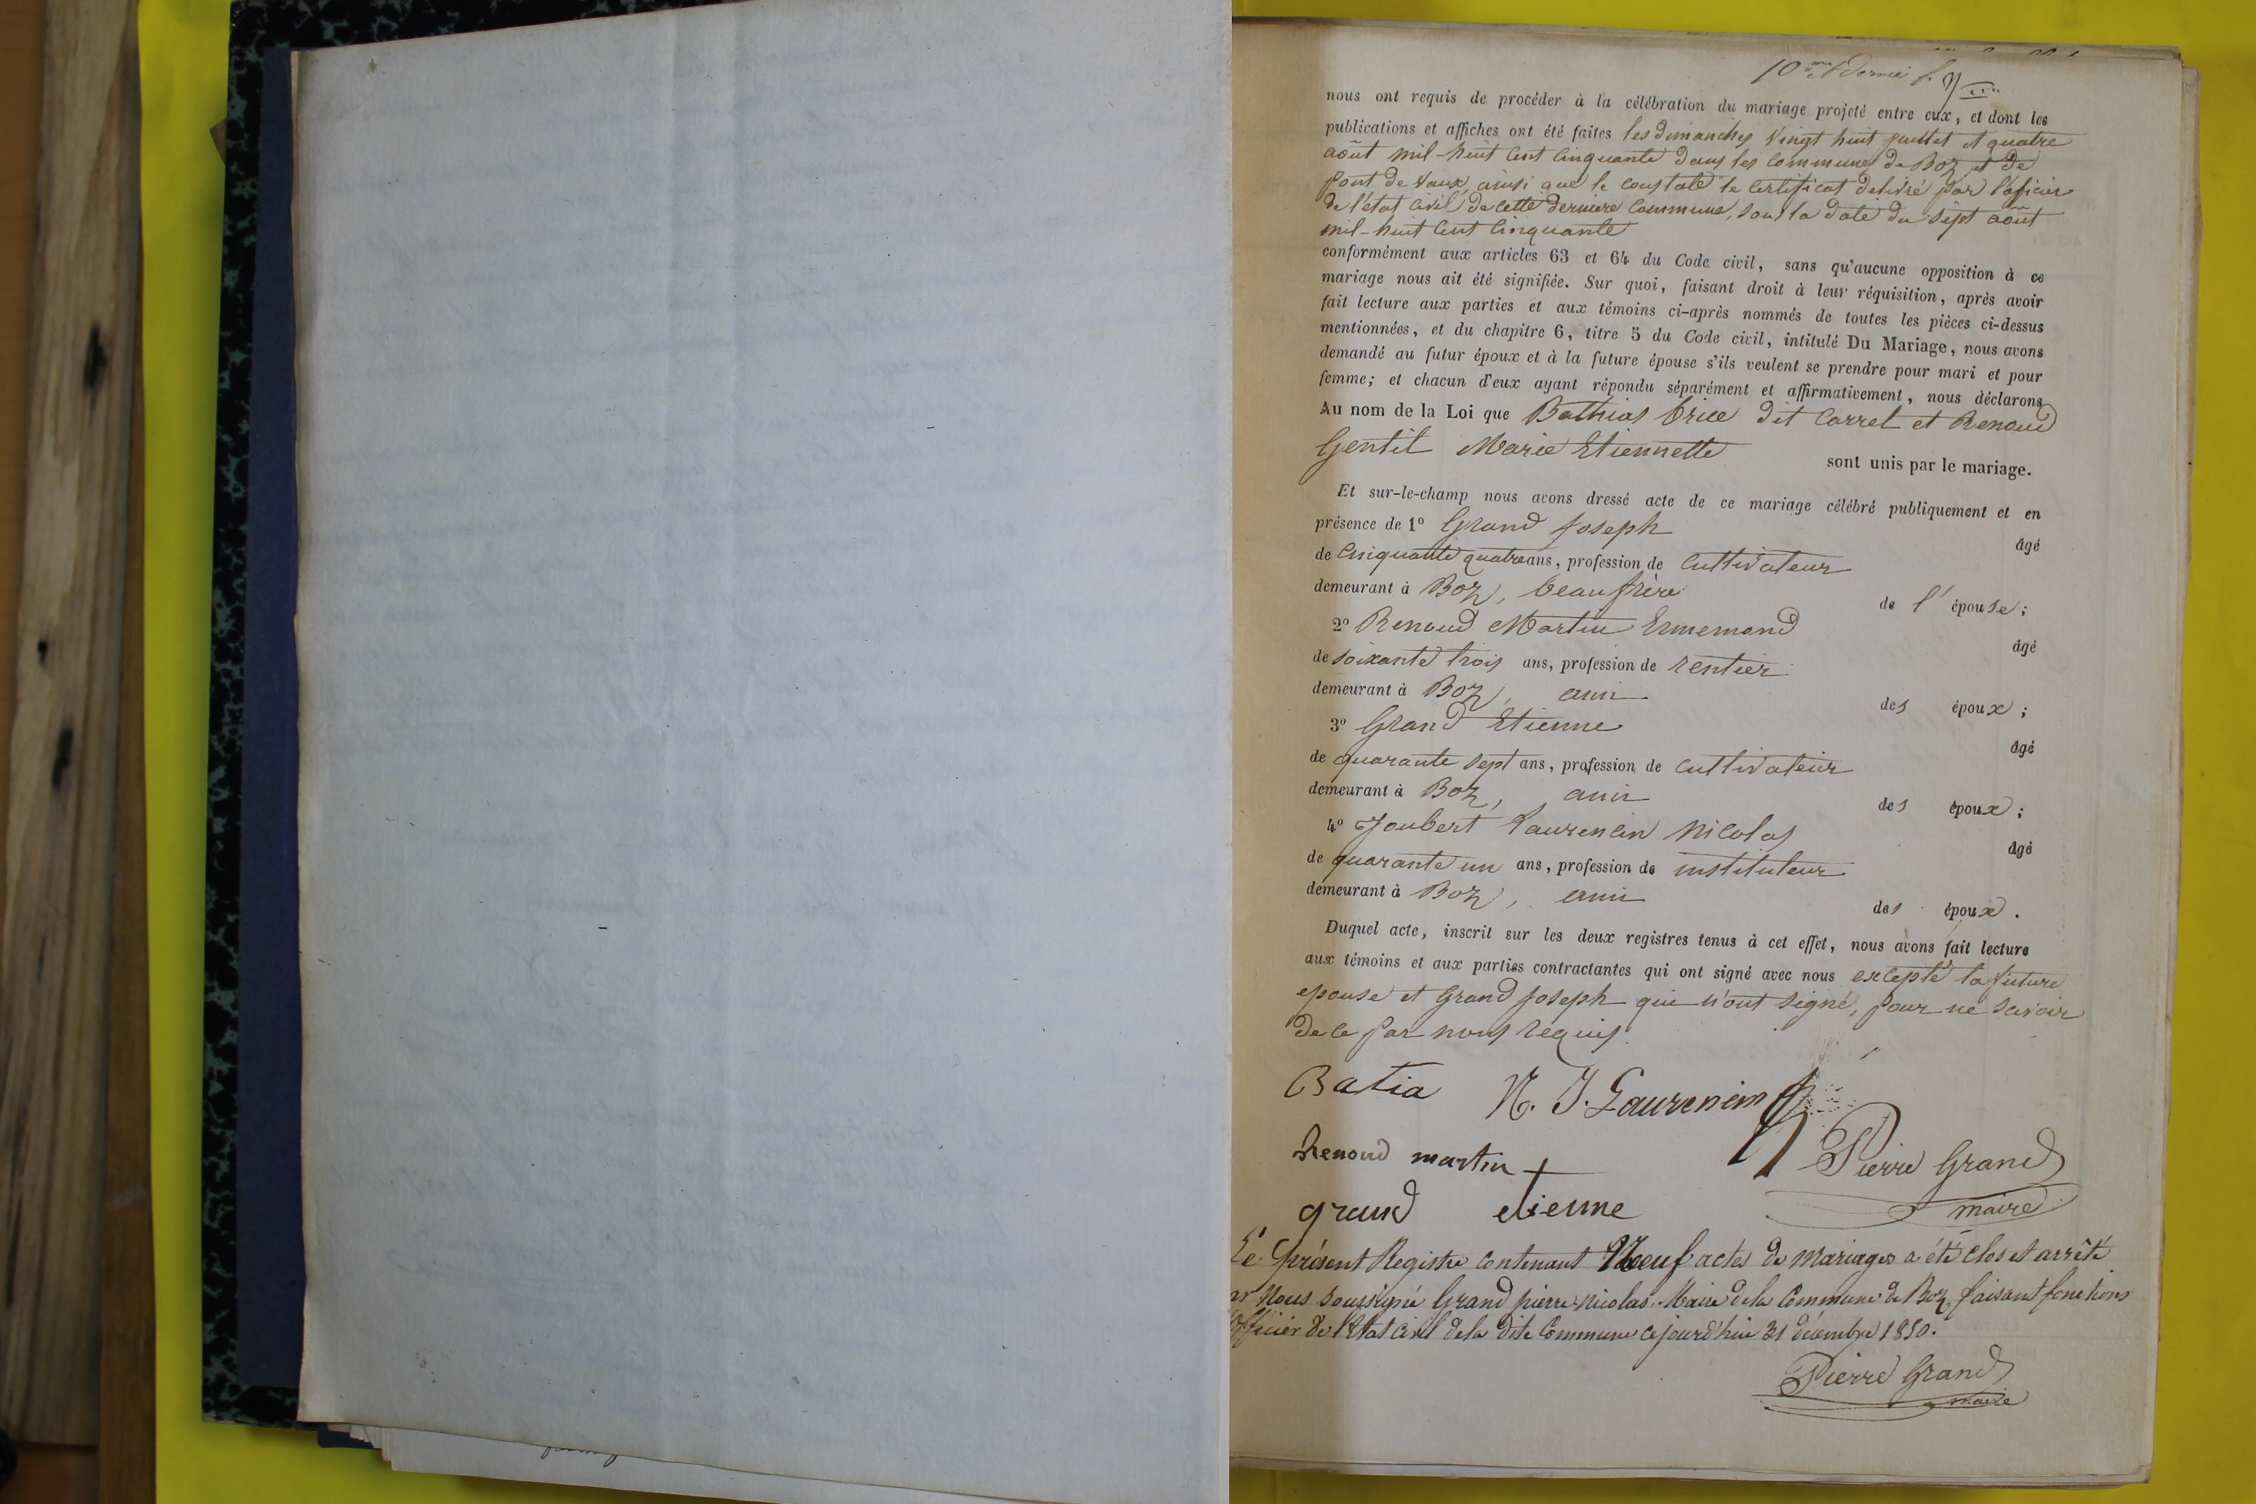 10me et dernier f.
nous ont requis de procéder à la célébration du mariage projeté entre eux, et dont les
publications et affiches ont été faites les dimanches vingt huit juillet et quatre
août mil-huit cent cinquante dans les communes de Boz et de
Pont de Vaux, ainsi que le constate le certificat délivré par l'officier
de l'état civil de cette dernière commune, sous la date du sept août
mil-huit cent cinquante
conformément aux articles 63 et 64 du Code civil, sans qu'aucune opposition à ce
mariage nous ait été signifiée. Sur quoi, faisant droit à leur réquisition, après avoir
fait lecture aux parties et aux témoins ci-après nommés de toutes les pièces ci-dessus
mentionnées, et du chapitre 6, titre 5 du Code civil, intitulé Du Mariage, nous avons
demandé au futur époux et à la future épouse s'ils veulent se prendre pour mari et pour
femme; et chacun d'eux ayant répondu séparément et affirmativement, nous déclarons
Au nom de la Loi que Bathias Brice dit Carrel et Renoud
Gentil Marie Etiennette sont unis par le mariage.
Et sur-le-champ nous avons dressé acte de ce mariage célébré publiquement et en
présence de 1o Grand Joseph âgé
de cinquante quatre ans, profession de cultivateur
demeurant à Boz, beaufrère de l'épouse;
2o Renoud Martin Ennemond âgé
de soixante trois ans, profession de rentier
demeurant à Boz, ami des époux;
3o Grand Etienne âgé
de quarante sept ans, profession de cultivateur
demeurant à Boz, ami des époux;
4o Joubert Laurencin Nicolas âgé
de quarante un ans, profession de instituteur
demeurant à Boz, ami des époux.
Duquel acte, inscrit sur les deux registres tenus à cet effet, nous avons fait lecture
aux témoins et aux parties contractantes qui ont signé avec nous excepté la future
epouse et Grand Joseph qui n'ont signé, pour ne savoir
de ce par nous requis.
Batia N. J. Laurencin
Renoud martin
Pierre Grand
maire
grand etienne
Le présent Registre contenant Neuf actes de mariages a été clos et arrêté
par Nous soussigné Grand pierre-nicolas, Maire de la Commune de Boz, faisant fonctions
d'officier de l'Etat civil de la dite Commune cejourd'hui 31 décembre 1850.
Pierre Grand
maire